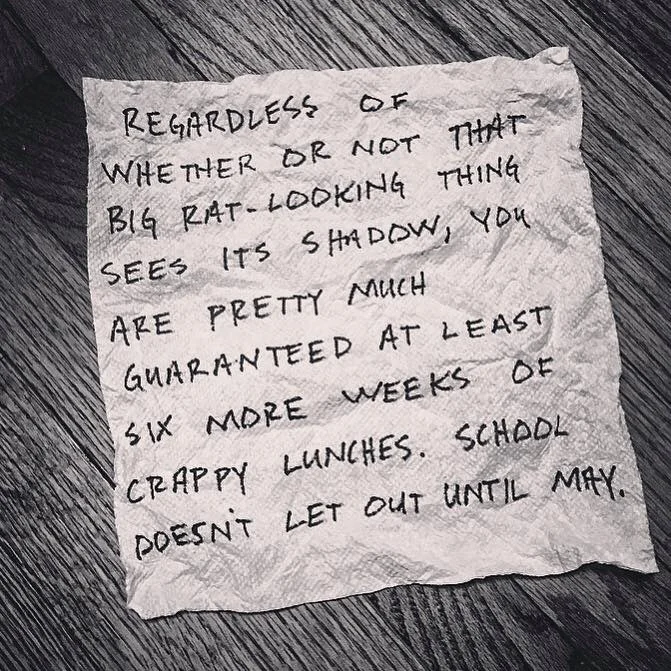 REGARDLESS OF
WHETHER OR NOT THAT
BIG RAT-LOOKING THING
SEES ITS SHADOW, YOU
ARE PRETTY MUCH
GUARANTEED AT LEAST
SIX MORE WEEKS OF
CRAPPY LUNCHES. SCHOOL
DOESN'T LET OUT UNTIL MAY.